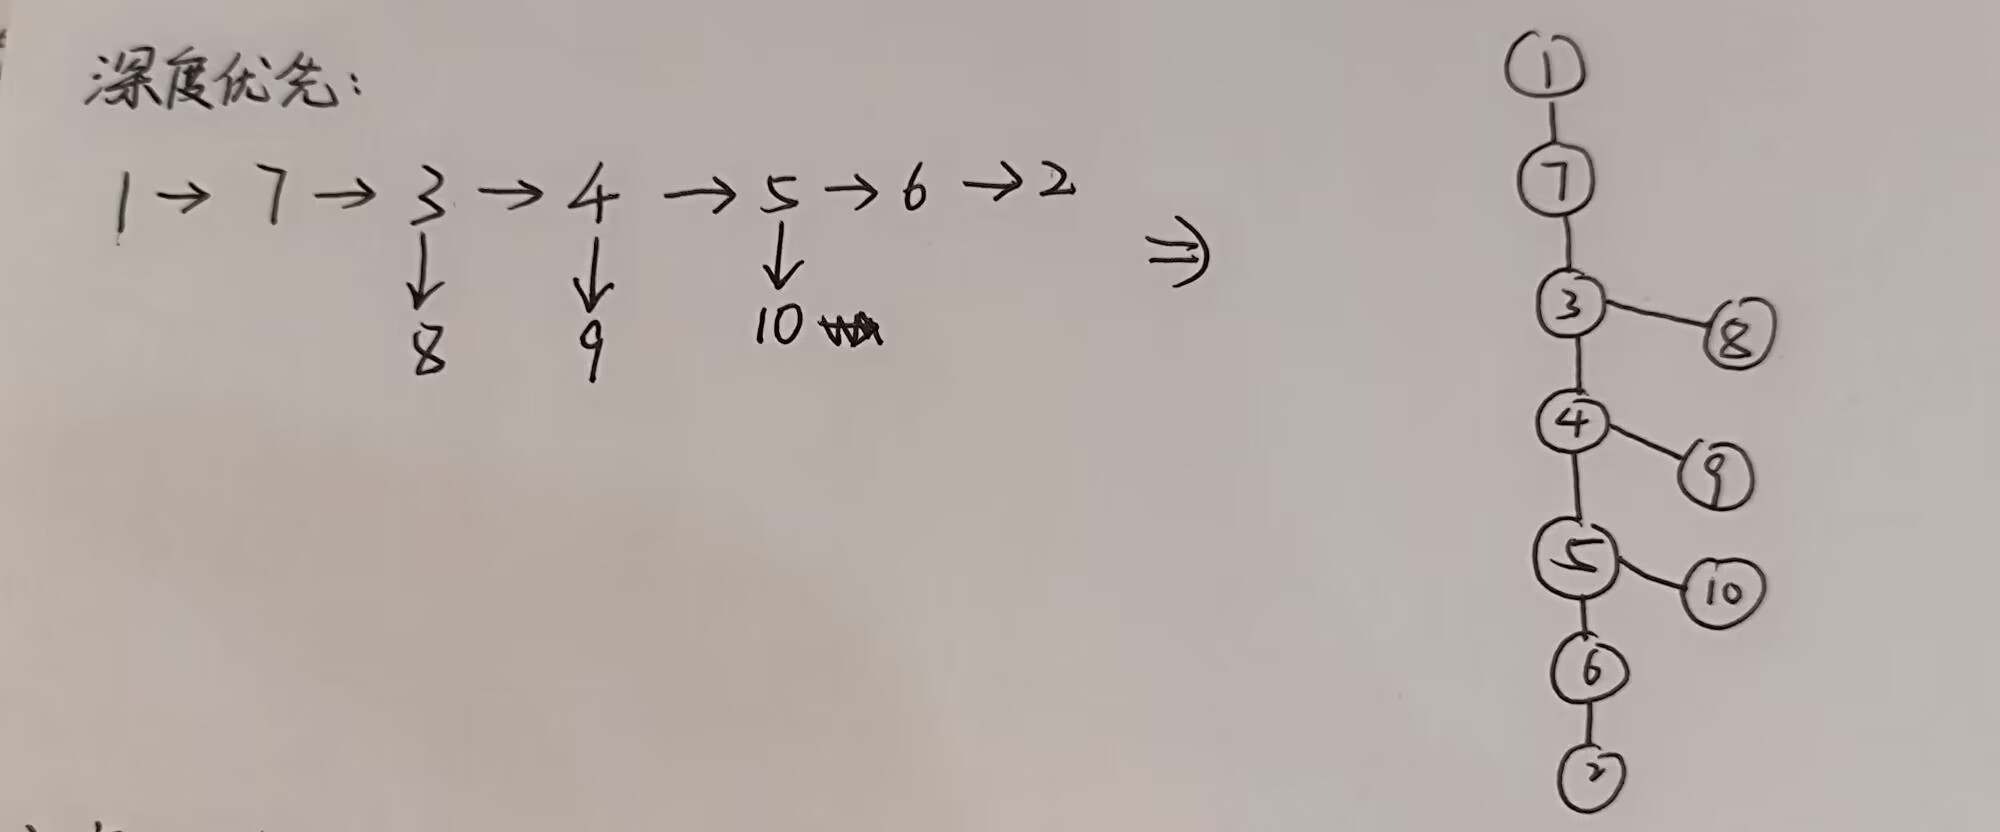 深度优先:
1 → 7 → 3 → 4 → 5 → 6 → 2 ⇒
↓ ↓ ↓
8 9 10
1
7
3 8
4 9
5 10
6
2